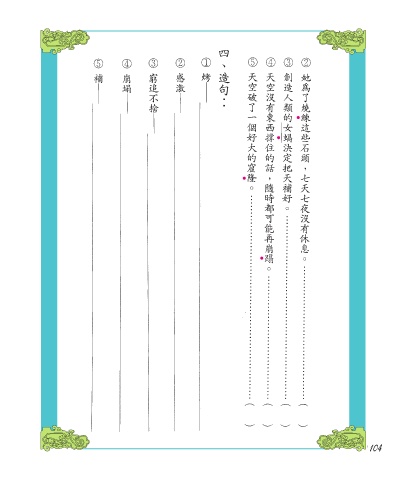 ②她為了燒鍊這些石頭，七天七夜沒有休息。…………（　）
③創造人類的女媧決定把天補好。…………（　）
④天空沒有東西撐住的話，隨時都可能再崩蹋。…………（　）
⑤天空破了一個好大的窟隆。…………（　）
四、造句：
①烤
②感激
③窮追不捨
④崩塌
⑤補
104